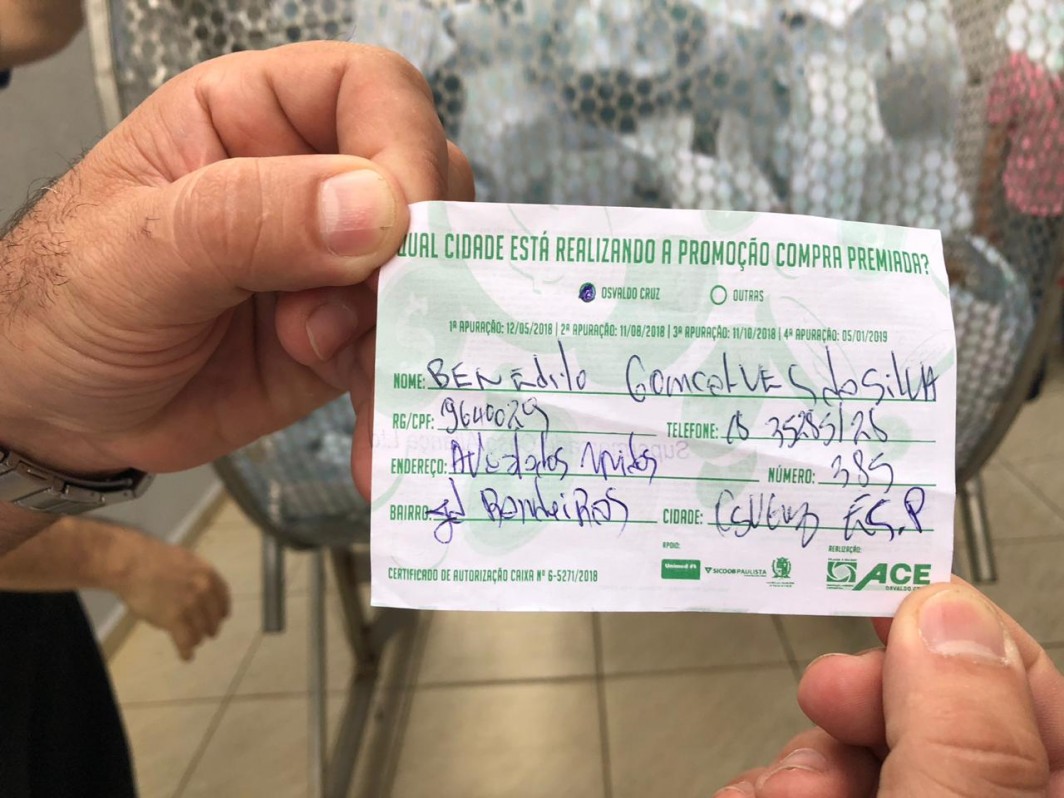 QUAL CIDADE ESTÁ REALIZANDO A PROMOÇÃO COMPRA PREMIADA?
OSVALDO CRUZ OUTRAS
1ª APURAÇÃO: 12/05/2018 | 2ª APURAÇÃO: 11/08/2018 | 3ª APURAÇÃO: 11/10/2018 | 4ª APURAÇÃO: 05/01/2019
NOME: BENEdito GomcalVES da SilVA
RG/CPF: 9640029 TELEFONE: 18 35285126
ENDEREÇO: AV: Estados Unidos NÚMERO: 385
BAIRRO: Jd BandeiRAS CIDADE: S.P
APOIO: REALIZAÇÃO:
Unimed SICOOB PAULISTA ACE
CERTIFICADO DE AUTORIZAÇÃO CAIXA Nº 6-5271/2018